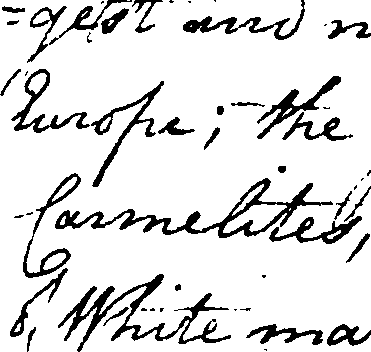 =gest and
Europe; the
Carmelites,
& White ma